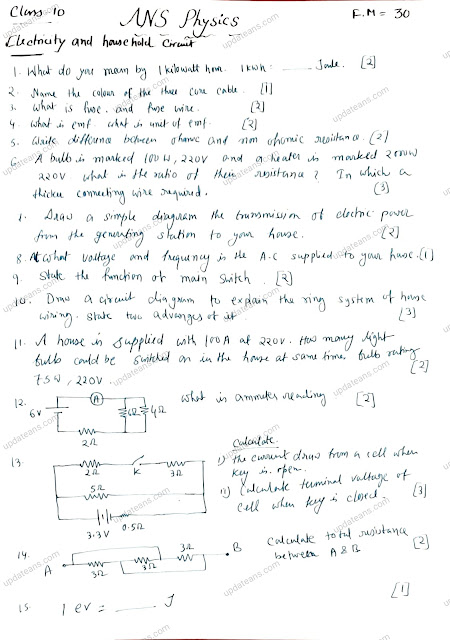 Class 10 ANS Physics F.M = 30
Electricity and household circuit
1. What do you mean by 1 kilowatt hour. 1 kWh: ____ Joule. [2]
2. Name the colour of the three core cable. [1]
3. What is fuse. and fuse wire. [2]
4. What is emf. what is unit of emf. [2]
5. Write difference between ohmic and non ohmic resistance. [2]
6. A bulb is marked 100W, 220V and a heater is marked 2000W
220V what is the ratio of their resistance? In which a
thicker connecting wire required. (3)
Draw a simple diagram the transmission of electric power
from the generating station to your house. [2]
8. At what voltage and frequency is the A.C supplied to your house. [1]
9. State the function of main switch. [2]
10. Draw a circuit diagram to explain the ring system of house
wiring. State two advanges of it [3]
11. A house is supplied with 100A at 220V. How many light
bulb could be switched on in the house at same time. bulb rating
75W, 220V. [2]
12. A what is ammeter reading [2]
6V 4Ω
2Ω
Calculate.
13. i) the current draw from a cell when
key is open.
2Ω K 3Ω
5Ω
ii) Calculate terminal voltage of
cell when key is closed. [3]
3.3V 0.5Ω
14. 3Ω B Calculate total resistance
A between A & B [2]
3Ω 3Ω
15. 1 ev = ____ J [1]
updateans.com